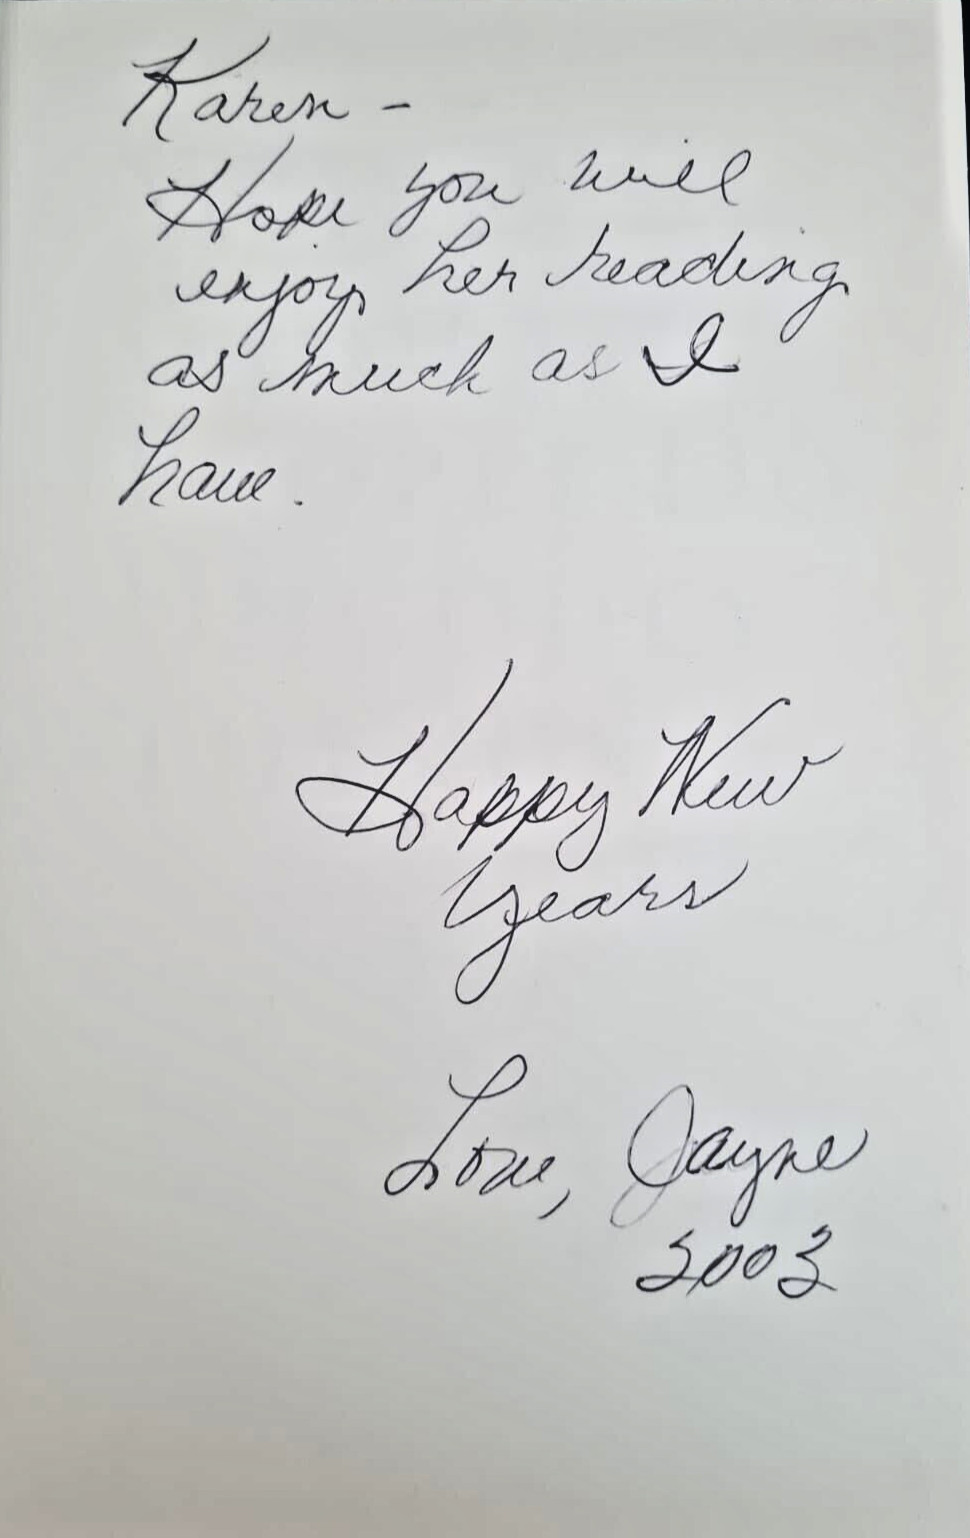 Karen -
Hope you will
enjoy her reading
as much as I
have.
Happy New
Years
Love, Jayne
2003